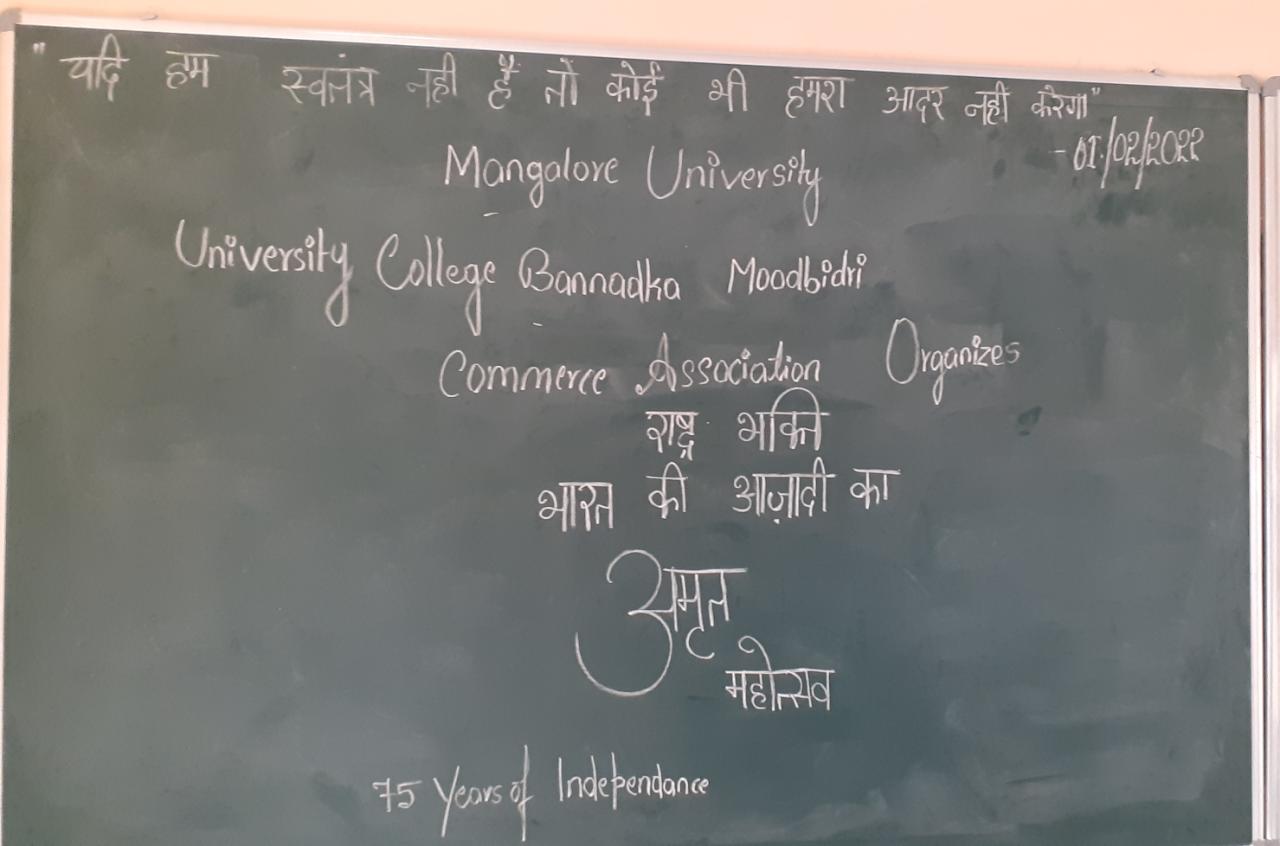 "यदि हम स्वतंत्र नही हैं तो कोई भी हमरा आदर नही करेगा"
- 01/02/2022
Mangalore University
University College Bannadka Moodbidri
Commerce Association Organizes
राष्ट्र भक्ति
भारत की आज़ादी का
अमृत
महोत्सव
75 Years of Independance